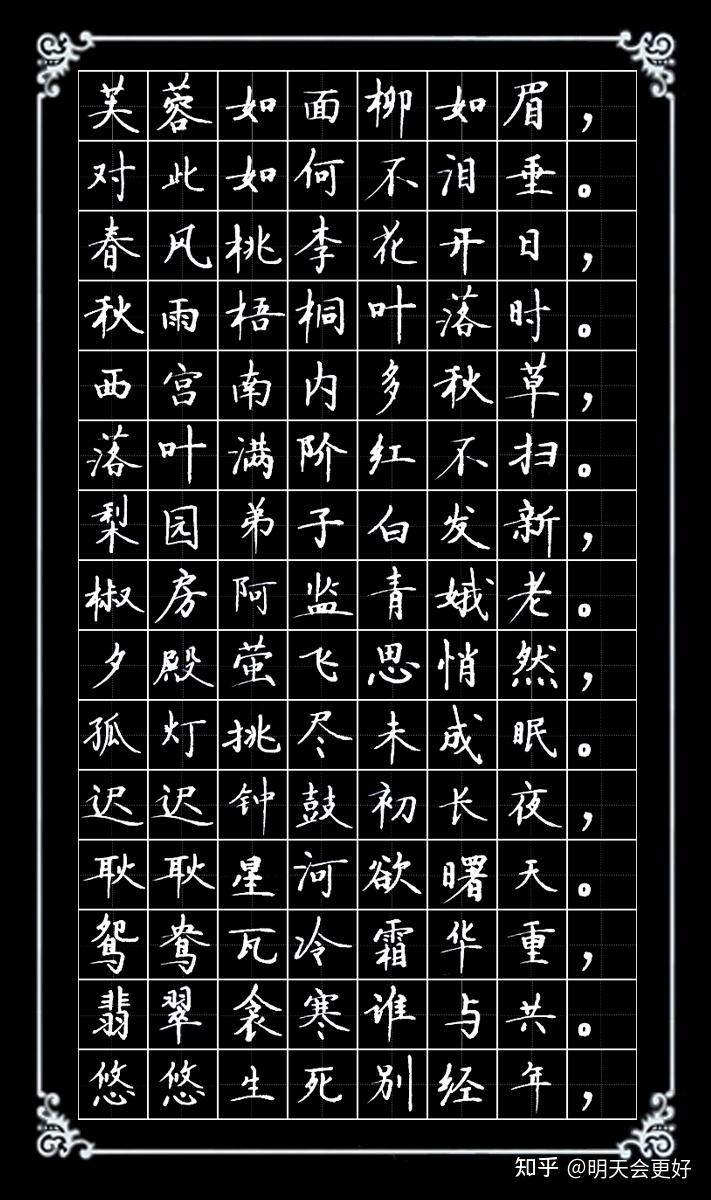 芙蓉如面柳如眉，
对此如何不泪垂。
春风桃李花开日，
秋雨梧桐叶落时。
西宫南内多秋草，
落叶满阶红不扫。
梨园弟子白发新，
椒房阿监青娥老。
夕殿萤飞思悄然，
孤灯挑尽未成眠。
迟迟钟鼓初长夜，
耿耿星河欲曙天。
鸳鸯瓦冷霜华重，
翡翠衾寒谁与共。
悠悠生死别经年，
知乎 @明天会更好